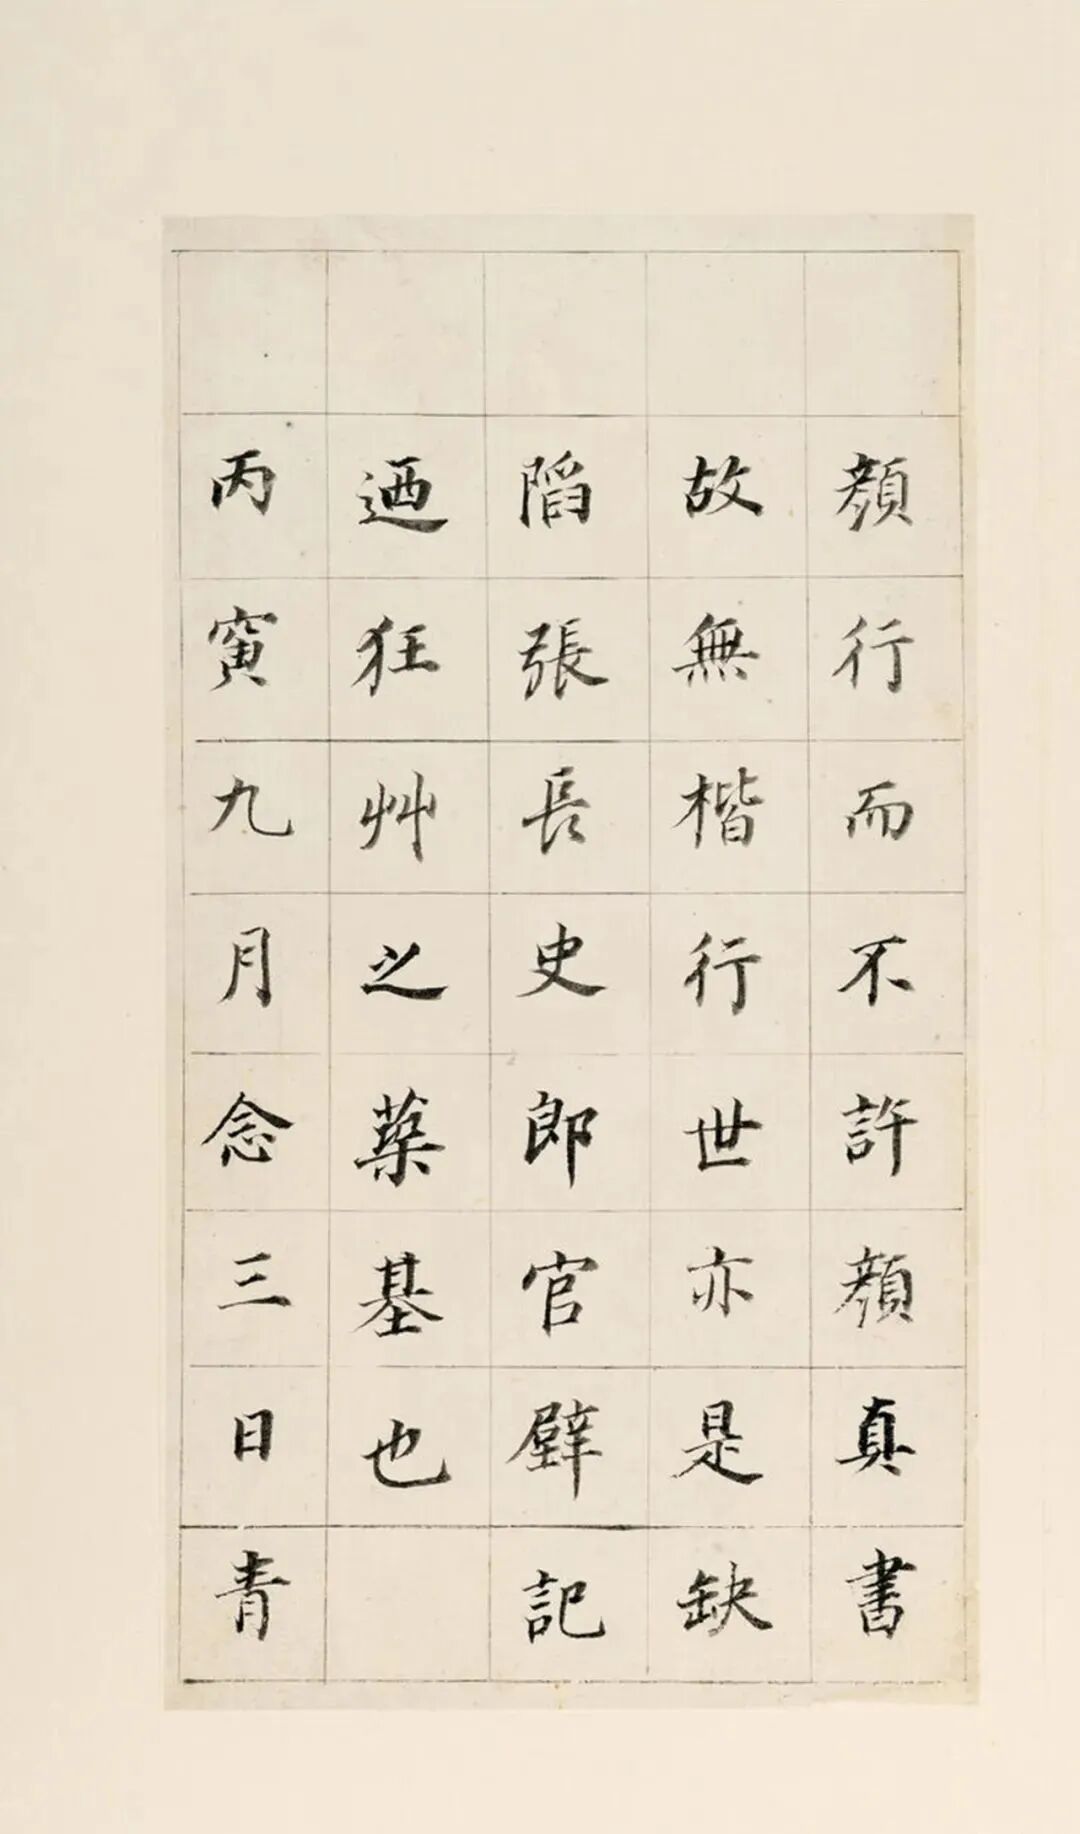 顏行而不許顏真書
故無楷行世亦是缺
陷張長史郎官壁記
迺狂艸之藥基也
丙寅九月念三日青